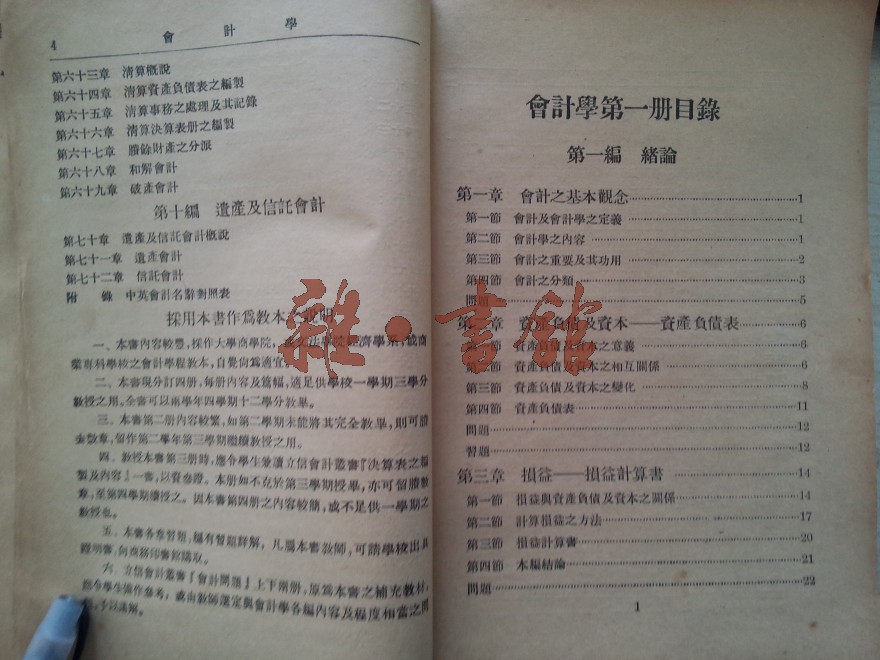 4 會計學
第六十三章 清算概說
第六十四章 清算資產負債表之編製
第六十五章 清算事務之處理及其記錄
第六十六章 清算決算表册之編製
第六十七章 賸餘財產之分派
第六十八章 和解會計
第六十九章 破產會計
第十編 遺產及信託會計
第七十章 遺產及信託會計概說
第七十一章 遺產會計
第七十二章 信託會計
附錄 中英會計名辭對照表
採用本書作爲敎本之說明
一、本書內容較豐,採作大學商學院,或文法學院經濟學系,或商
業專科學校之會計學程敎本,自覺尙爲適宜。
二、本書現分訂四册,每册內容及篇幅,適足供學校一學期三學分
敎授之用。全書可以兩學年四學期十二學分敎畢。
三、本書第二册內容較繁,如第二學期未能將其完全敎畢,則可賸
數章,留作第二學年第三學期繼續敎授之用。
四、敎授本書第三册時,應令學生兼讀立信會計叢書『決算表之編
製及內容』一書,以資參證。本册如不克於第三學期授畢,亦可留賸數
章,至第四學期續授之。因本書第四册之內容較簡,或不足供一學期之
敎授也。
五、本書各章習題,編有習題詳解,凡屬本書敎師,可請學校出具
證明書,向商務印書館購取。
六、立信會計叢書『會計問題』上下兩册,原爲本書之補充敎材,
應令學生作參考,或由敎師選定與會計學各編內容及程度相當之問
予以講解。
雜·書館
會計學第一册目錄
第一編 緒論
第一章 會計之基本觀念 1
第一節 會計及會計學之定義 1
第二節 會計學之內容 1
第三節 會計之重要及其功用 2
第四節 會計之分類 3
問題 5
第二章 資產負債及資本——資產負債表 6
第一節 資產負債及資本之意義 6
第二節 資產負債及資本之相互關係 6
第三節 資產負債及資本之變化 8
第四節 資產負債表 11
問題 12
習題 12
第三章 損益——損益計算書 14
第一節 損益與資產負債及資本之關係 14
第二節 計算損益之方法 17
第三節 損益計算書 20
第四節 本編結論 21
問題 22
1